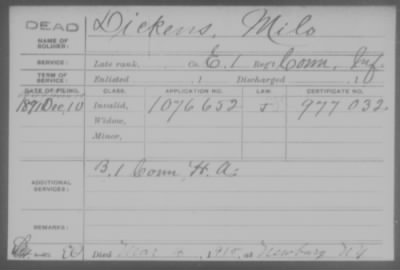 DEAD
NAME OF SOLDIER:
Dickens, Milo
SERVICE:
Late rank, Co. E. 1 Reg't Conn. Inf.
TERM OF SERVICE:
Enlisted , 1 Discharged , 1
DATE OF FILING. CLASS. APPLICATION NO. LAW. CERTIFICATE NO.
1891 Dec, 10 Invalid, 1076652 J 977032.
Widow,
Minor,
ADDITIONAL SERVICES:
B. 1 Conn. H. A.
REMARKS:
Died Mar at Newburg N Y